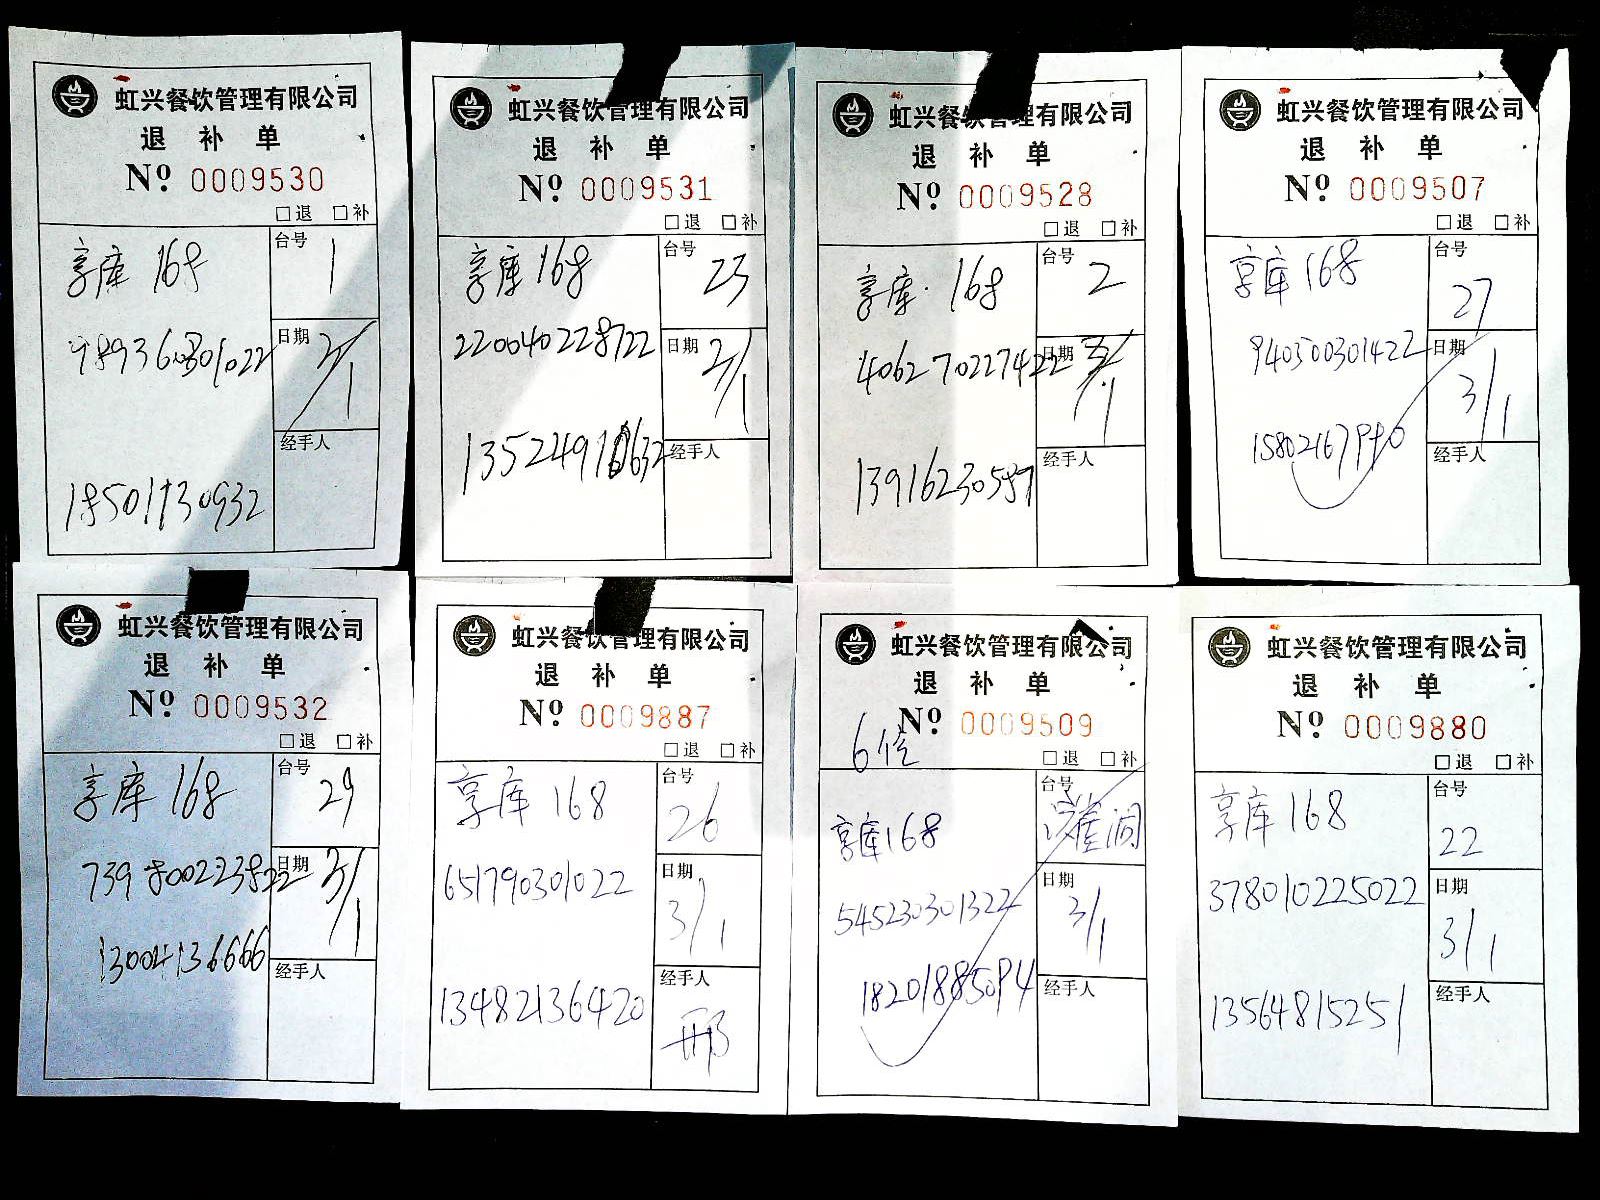 虹兴餐饮管理有限公司
退 补 单
Nº 0009530
□退 □补
享库 168
台号 1
989360301022
日期 2/1
经手人
18501730932
虹兴餐饮管理有限公司
退 补 单
Nº 0009531
□退 □补
享库 168
台号 23
220040228722
日期 2/1
经手人
虹兴餐饮管理有限公司
退 补 单
Nº 0009528
□退 □补
享库 168
台号 2
406270227422
日期
经手人
13916230587
虹兴餐饮管理有限公司
退 补 单
Nº 0009507
□退 □补
享库 168
台号 27
940500301422
日期 3/1
15802167940
经手人
虹兴餐饮管理有限公司
退 补 单
Nº 0009532
□退 □补
享库 168
台号 29
739800223822
日期 3/1
13004136666
经手人
虹兴餐饮管理有限公司
退 补 单
Nº 0009887
□退 □补
享库 168
台号 26
651790301022
日期 3/1
13482136420
经手人 邢
虹兴餐饮管理有限公司
退 补 单
Nº 0009509
□退 □补
享库 168
台号
545230301322
日期 3/1
18201885094
经手人
虹兴餐饮管理有限公司
退 补 单
Nº 0009880
□退 □补
享库 168
台号 22
378010225022
日期 3/1
13564815251
经手人